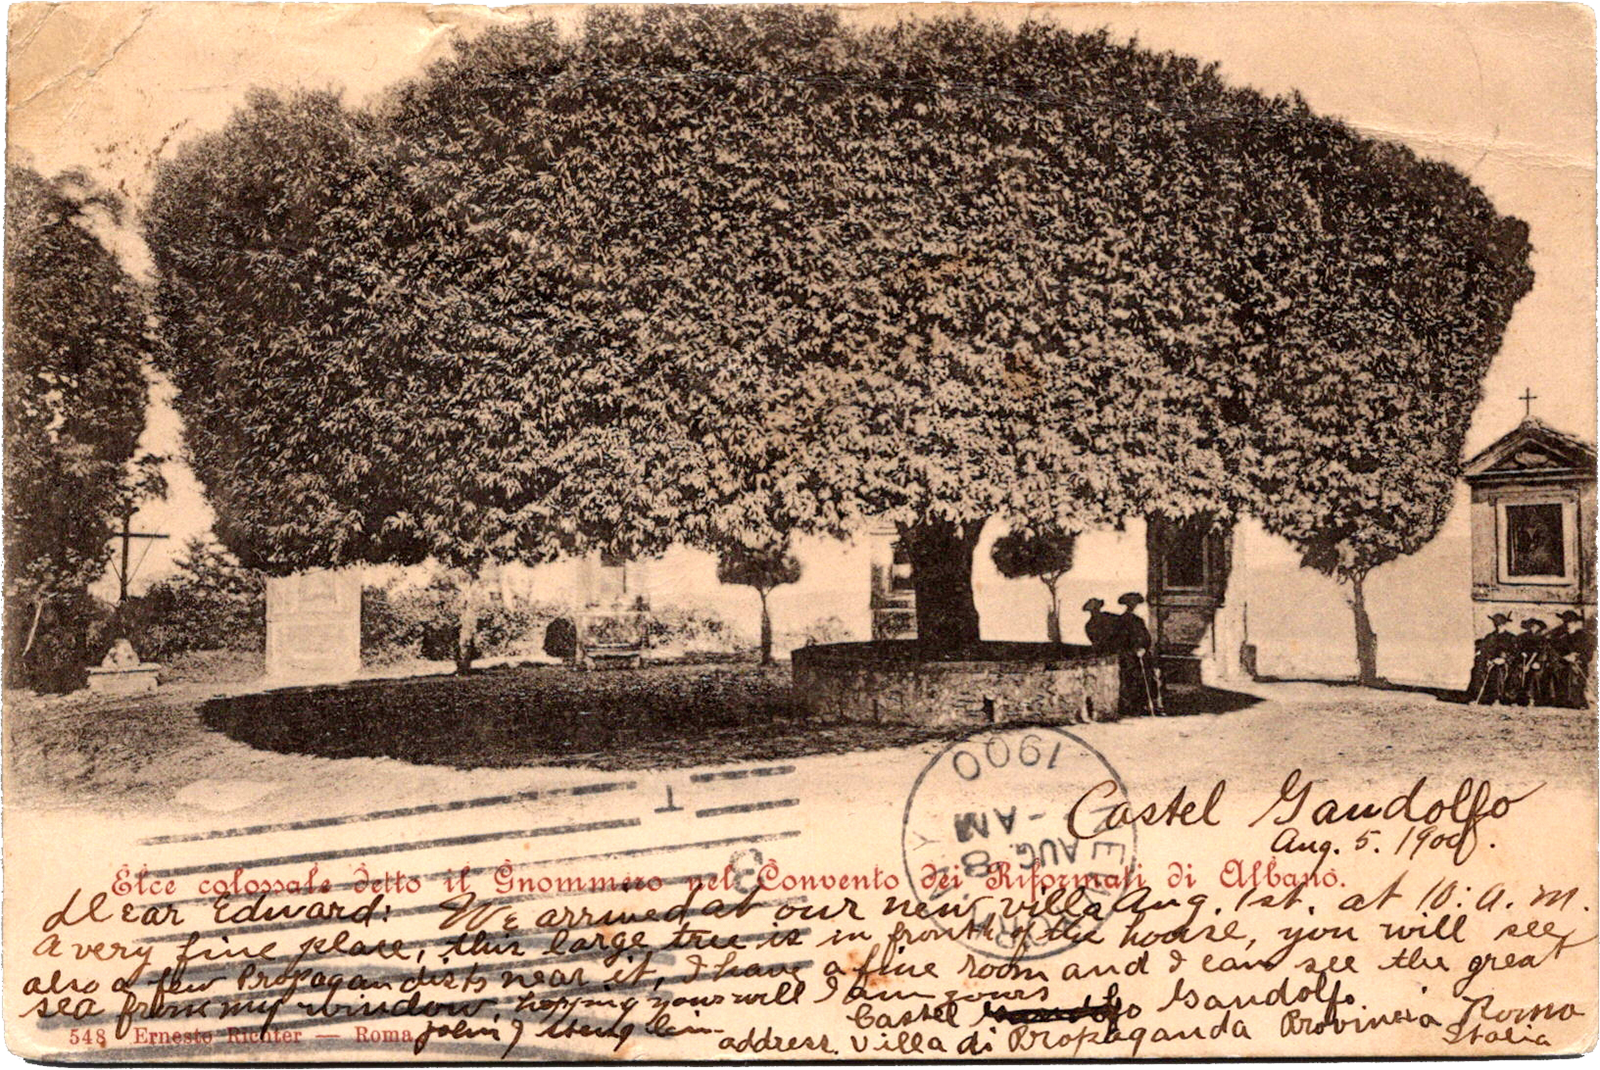 Castel Gandolfo
Aug. 5. 1900.
1900
AUG 8
-AM
T
3
Elce colossale detto il Gnommero nel Convento dei Riformati di Albano.
Dear Edward: We arrived at our new villa Aug. 1st. at 10. a. m.
a very fine place, this large tree is in front of the house, you will see
also a few Propagandists near it, I have a fine room and I can see the great
sea from my window. hoping your well I am yours
Castel Gandolfo
John J
address. Villa di Propaganda Provincia Roma
Italia
548 Ernesto Richter — Roma